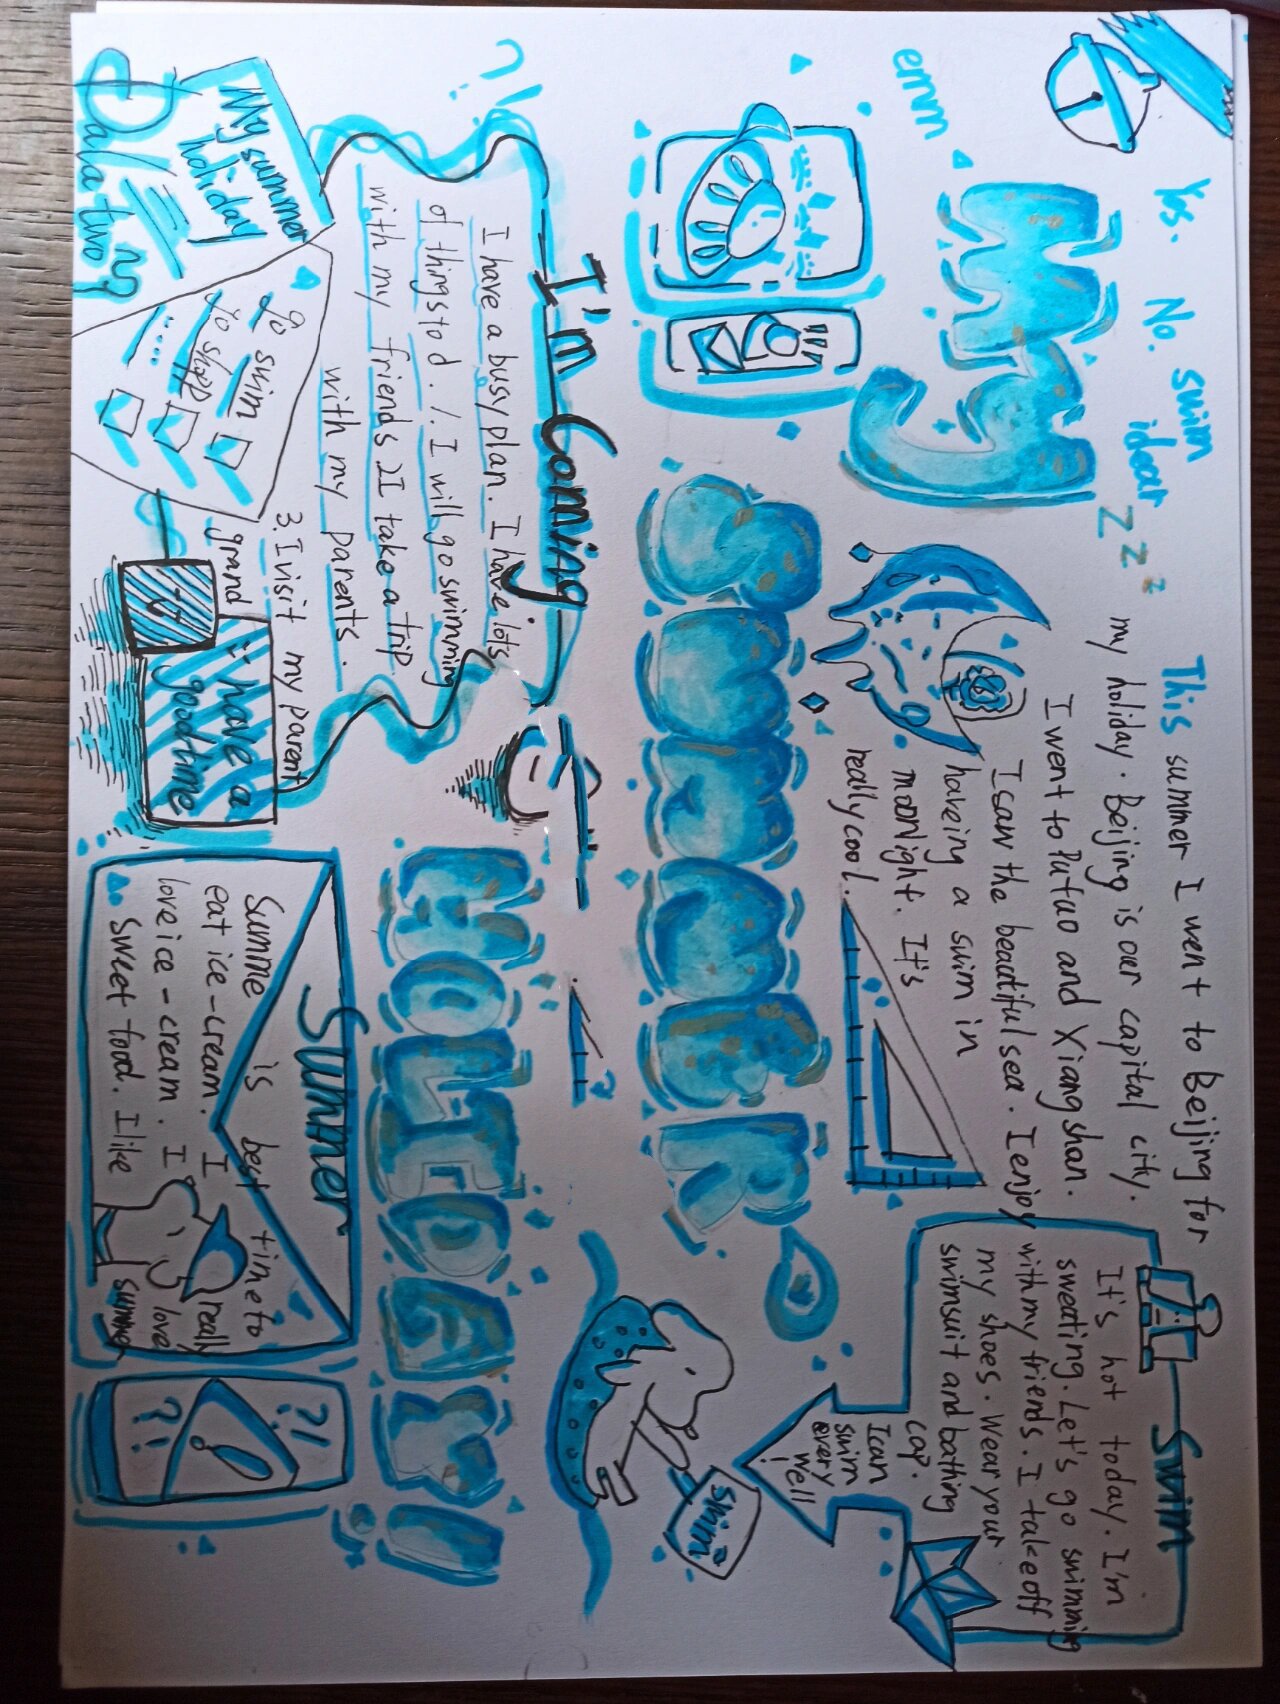 Yes. No. swim
idear
emm
My
z z z
This summer I went to Beijing for
my holiday. Beijing is our capital city.
I went to Putuo and Xiangshan.
I saw the beautiful sea. I enjoy
haveing a swim in
moonlight. It's
really cool.
Swim
It's hot today. I'm
sweating. Let's go swimming
with my friends. I take off
my shoes. Wear your
swimsuit and bathing
cap.
I can
swim
every
well
!
SUMMER
swim
I'm Coming
I have a busy plan. I have lots
of things to d. 1. I will go swimming
with my friends 2 I take a trip
with my parents.
3. I visit my parent
grand
HOLIDAY!
My summer
holiday
go swim
go shop
......
i have a
good time
Summer
Summe is best time to
eat ice-cream. I really
love ice-cream. I love
sweet food. I like summer
?!
?!